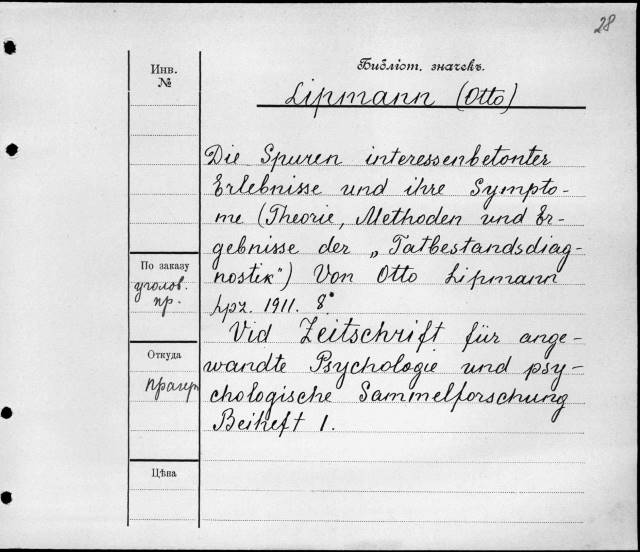 28
Инв.
№
Библіот. значекъ.
Lipmann (Otto)
Die Spuren interessenbetonter
Erlebnisse und ihre Sympto-
me (Theorie, Methoden und Er-
gebnisse der „Tatbestandsdiag-
nostik“) Von Otto Lipmann
Lpz. 1911. 8°.
Vid Zeitschrift für ange-
wandte Psychologie und psy-
chologische Sammelforschung
Beiheft 1.
По заказу
уголов.
пр.
Откуда
Цѣна